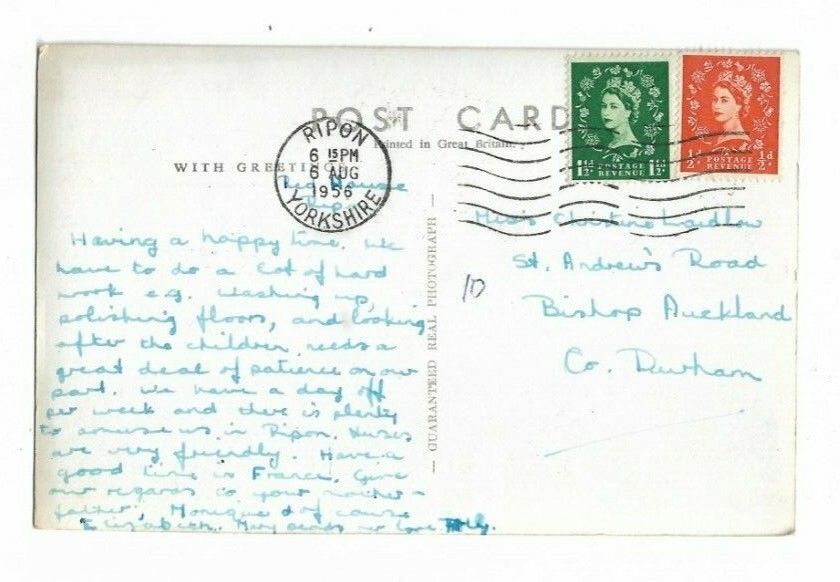 POST CARD
Printed in Great Britain.
WITH GREETINGS
RIPON
6 15 PM
6 AUG
1956
YORKSHIRE
1½d POSTAGE REVENUE 1½d
½d POSTAGE REVENUE ½d
House
Having a happy time. We
have to do a lot of hard
work e.g. washing up,
polishing floors, and looking
after the children needs a
great deal of patience on our
part. We have a day off
per week and there is plenty
to amuse us in Ripon. Nurses
are very friendly. Have a
good time in France. Give
our regards to your mother +
father, Monique & of course
Elizabeth. Mary sends her love
— GUARANTEED REAL PHOTOGRAPH —
10
Miss Christine Laidlow
St. Andrew's Road
Bishop Auckland
Co. Durham